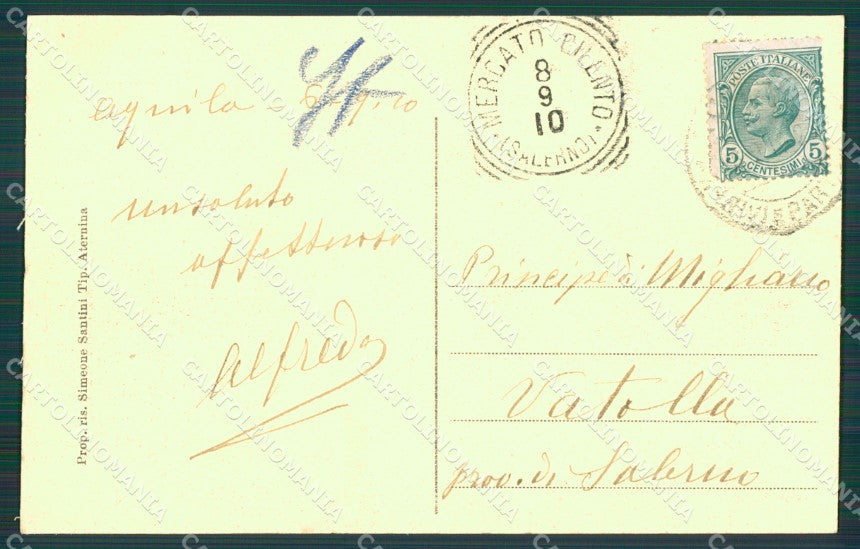 Aquila 6.9.10
un saluto
affettuoso
Alfredo
Prop. ris. Simeone Santini Tip. Aternina
MERCATO CILENTO
(SALERNO)
8
9
10
POSTE ITALIANE
5 CENTESIMI 5
Principe di Migliano
Vatolla
prov. di Salerno
CARTOLINOMANIA